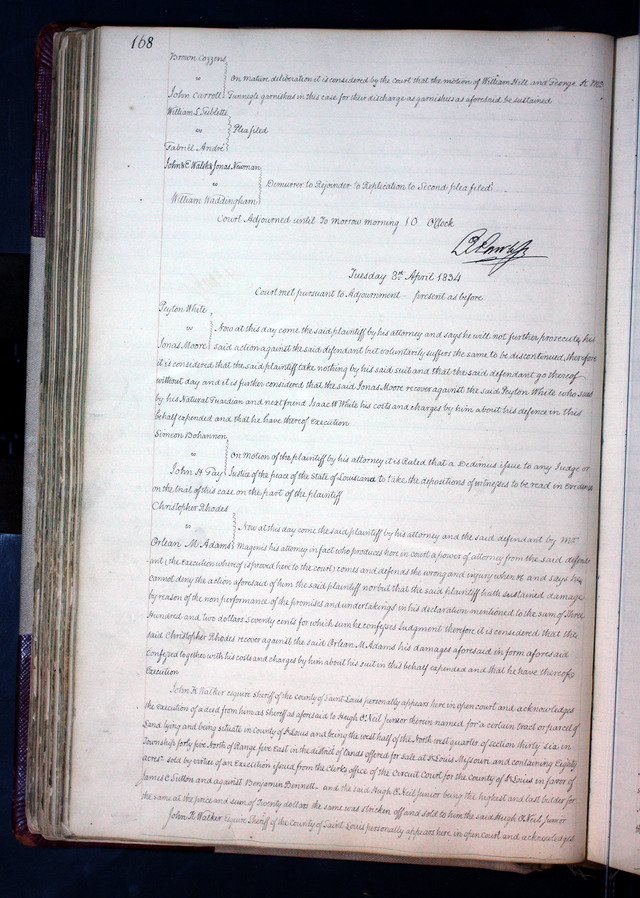 168
Brown Cozzens
vs
John Carroll
On mature deliberation it is considered by the Court that the motion of William Hill and George K Mc
Gunnegle garnishees in this case for their discharge as garnishees as aforesaid be sustained
William L Sublette
vs
Gabriel André
Plea filed
John & E Walsh & Jonas Newman
vs
William Waddingham
Demurrer to Rejoinder to Replication to Second plea filed
Court Adjourned until To morrow morning 10 O'Clock
Tuesday April 1834
Court met pursuant to Adjournment present as before
Peyton White
vs
Jonas Moore
Now at this day come the said plaintiff by his attorney and says he will not further prosecute his
said action against the said defendant but voluntarily suffers the same to be discontinued, therefore
it is considered that the said plaintiff take nothing by his said suit and that the said defendant go thereof
without day and it is further considered that the said Jonas Moore recover against the said Peyton White who sues
by his Natural Guardian and next friend Isaac W White his costs and charges by him about his defence in this
behalf expended and that he have thereof Execution
Simeon Bohannon
vs
John H Fay
On motion of the plaintiff by his attorney it is Ruled that a Dedimus issue to any Judge or
Justice of the peace of the State of Louisiana to take the depositions of witnesses to be read in Evidence
on the trial of this case on the part of the plaintiff
Christopher Rhodes
vs
Orlean M Adams
Now at this day come the said plaintiff by his attorney and the said defendant by Mr
Magenis his attorney in fact who produces here in court a power of attorney from the said defend
ant (the Execution whereof is proved here to the court) comes and defends the wrong and injury when &c and says he
cannot deny the action aforesaid of him the said plaintiff nor but that the said plaintiff hath sustained damage
by reason of the non performance of the promises and undertakings in his declaration mentioned to the sum of Three
Hundred and Two dollars Seventy cents for which sum he confesses Judgment therefore it is considered that the
said Christopher Rhodes recover against the said Orlean M Adams his damages aforesaid in form aforesaid
Confessed together with his costs and charges by him about his suit in this behalf expended and that he have thereof
Execution
John K Walker esquire Sheriff of the county of Saint Louis personally appears here in open court and acknowledges
the execution of a deed from him as Sheriff as aforesaid to Hugh O'Neil Junior therein named for a certain tract or parcel of
Land lying and being situate in County of St Louis and being the west half of the North west quarter of section thirty six in
Township forty five North of Range five East in the district of Lands offered for sale at St Louis Missouri and containing Eighty
acres sold by virtue of an Execution issued from the Clerks office of the Circuit Court for the County of St Louis in favor of
James C Sutton and against Benjamin Bonnett and the said Hugh O'Neil Junior being the highest and last bidder for
the same at the price and sum of Twenty dollars the same was stricken off and sold to him the said Hugh O'Neil Junior
John K Walker esquire Sheriff of the County of Saint Louis personally appears here in open court and acknowledges